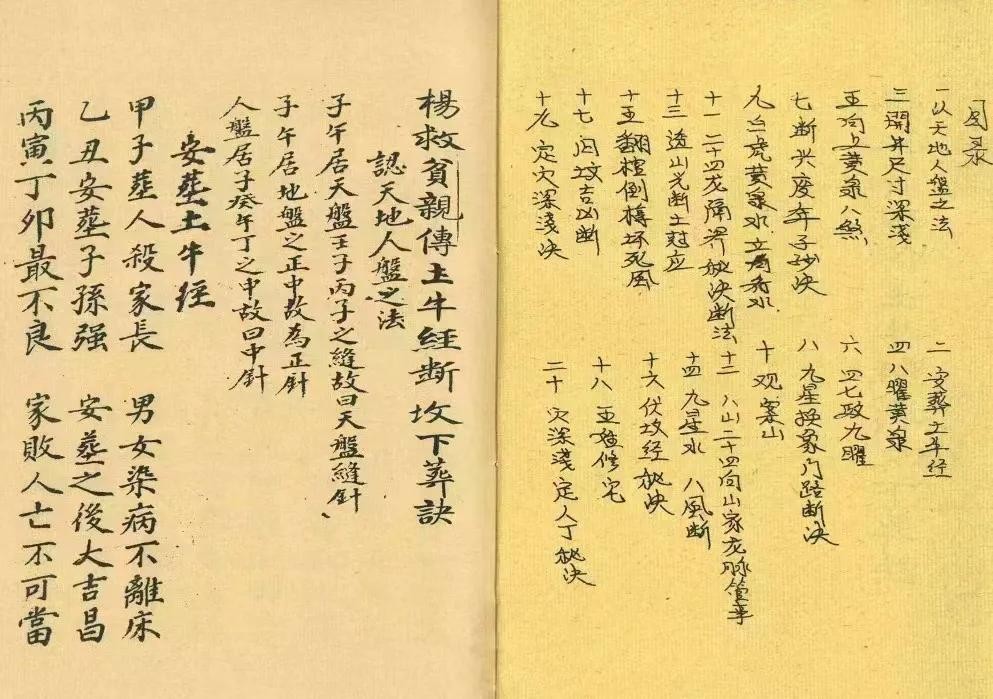 目录
一 认天地人盘之法
二 安葬土牛经
三 開井尺寸深浅
四 八曜黄泉
五 向上黄泉八煞
六 四七政九曜
七 断兴废年子砂决
八 九星换象门路断决
九 白虎黄泉水
十 观案山
十一 二十四龙隔界秘决断法
十二 八山二十四向山家龙脉管事
十三 透山光断土克应
十四 九星水 八風断
十五 翻棺倒椁坏死風
十六 伏坟经秘决
十七 问坟吉凶断
十八 王娘修宅
十九 定穴深浅决
二十 穴深浅定人丁秘决
楊救貧親傳土牛經断坟下葬訣
認天地人盤之法
子午居天盤壬子丙子之缝故曰天盤縫針
子午居地盤之正中故為正針
人盤居子癸午丁之中故曰中針
安葬土牛经
甲子葬人殺家長 男女染病不離床
乙丑安葬子孫强 安葬之後大吉昌
丙寅丁卯最不良 家敗人亡不可當